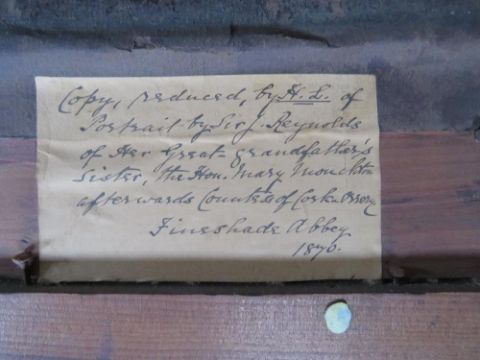 Copy, reduced, by H.L. of
Portrait by Sir J. Reynolds
of Her Great-grandfather's
Sister, the Hon. Mary Monckton
afterwards Countess of Cork & Orrery
Fineshade Abbey
1870.